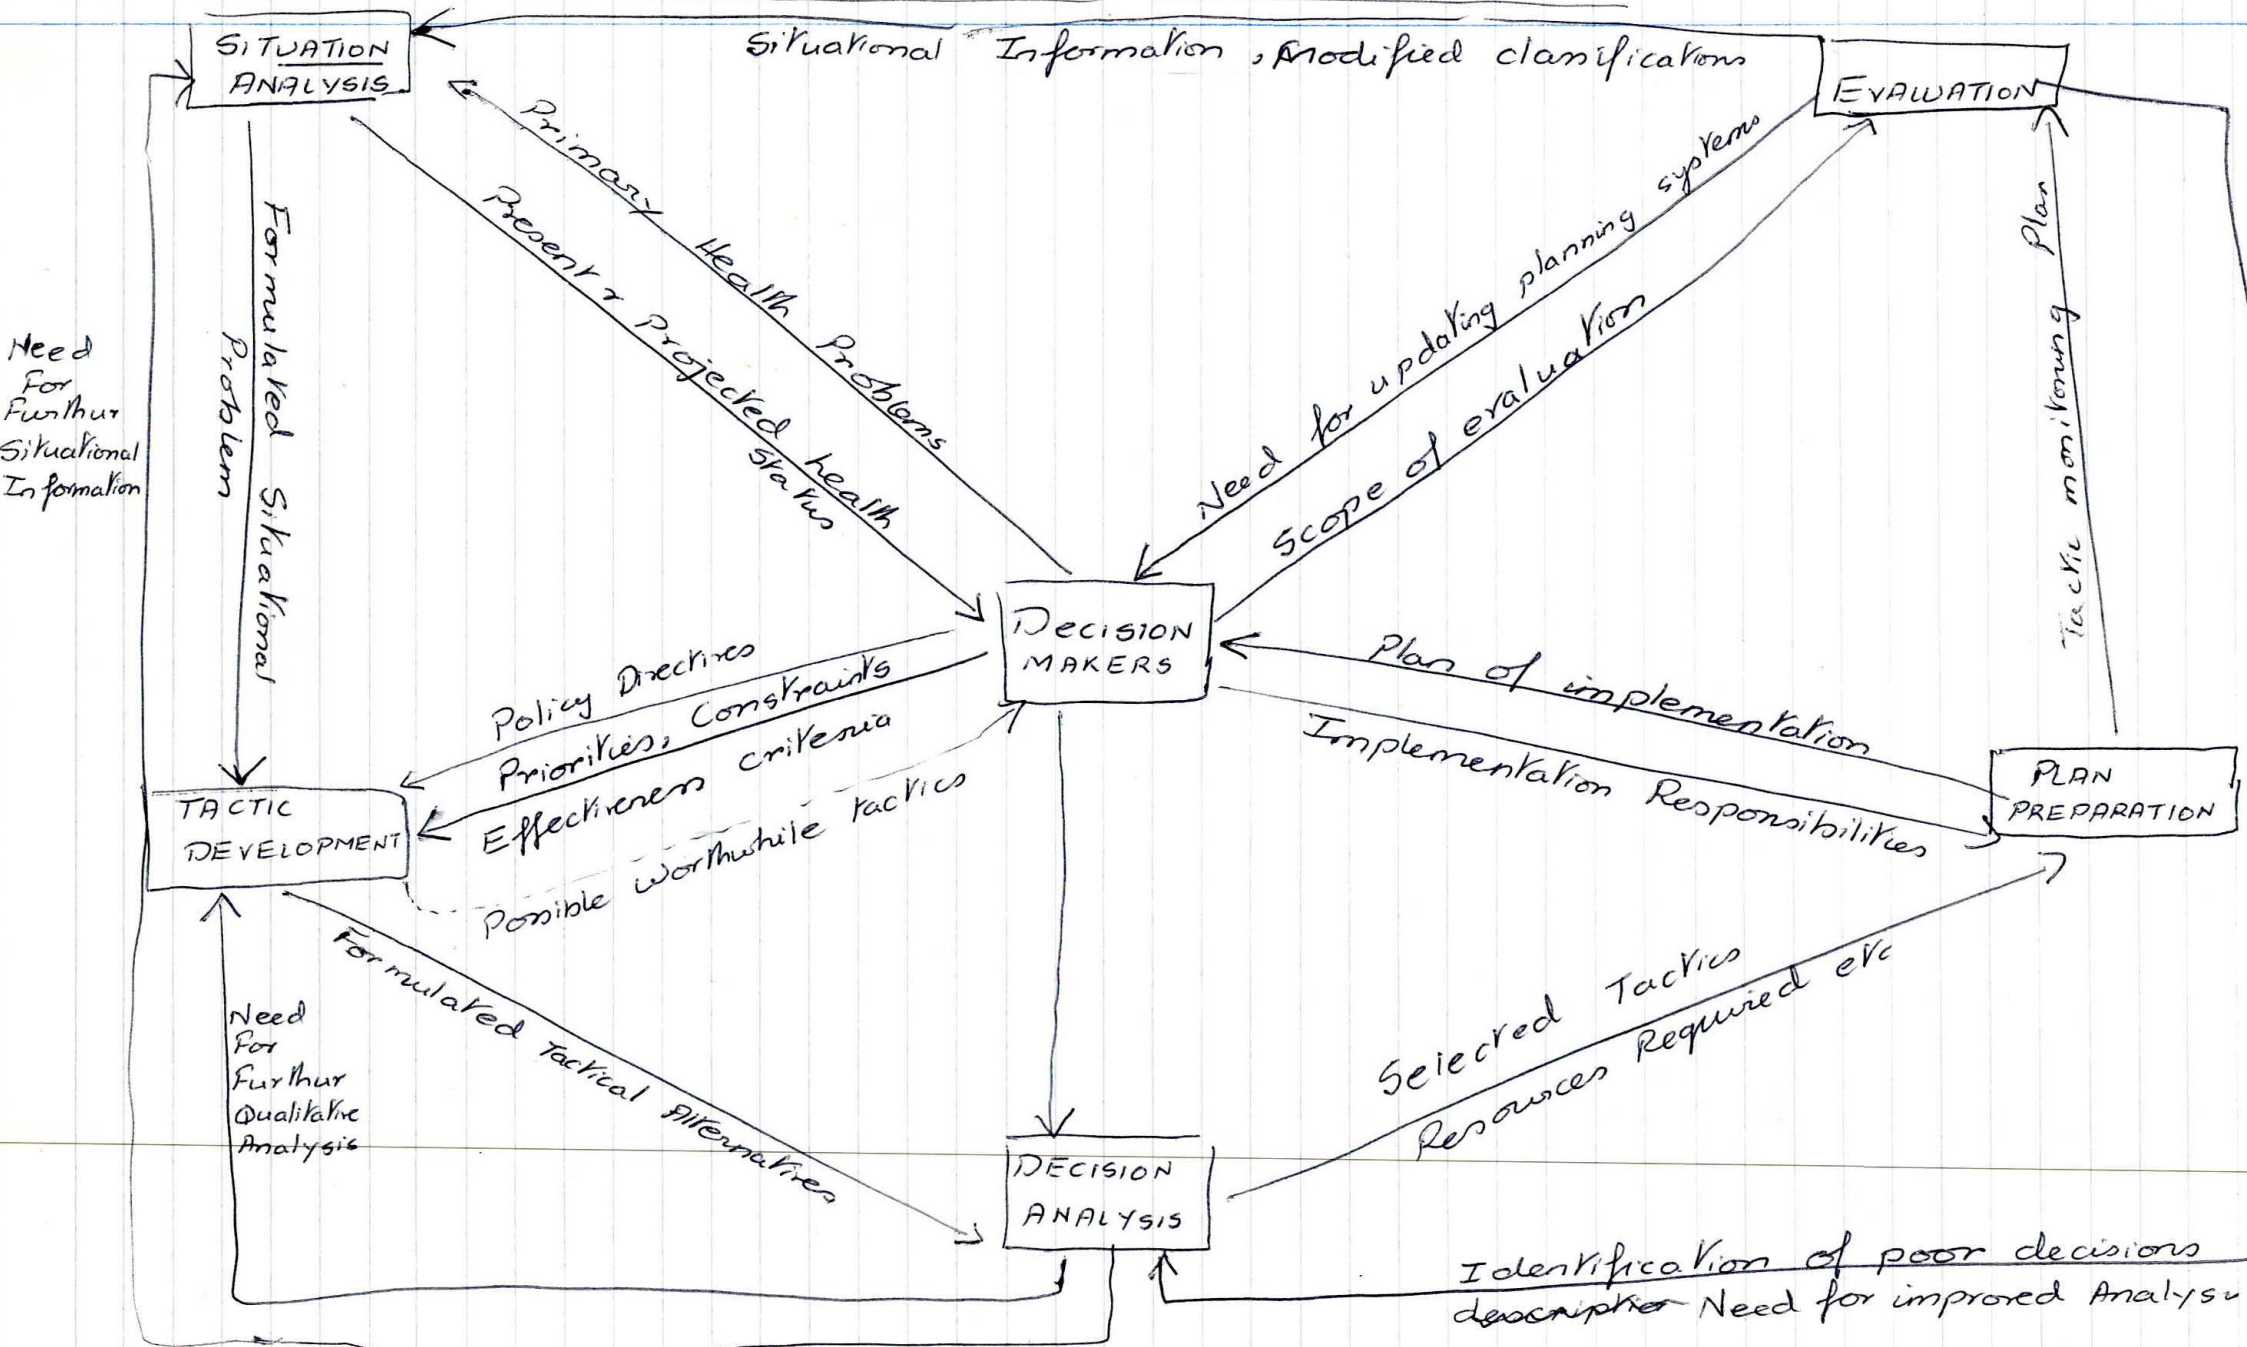 SITUATION
ANALYSIS
Situational Information, modified classifications
EVALUATION
Primary Health Problems
Present & Projected health
status
Formulated Situational
Problem
Need for updating planning systems
Scope of evaluation
Tactic monitoring Plan
Need
For
Furthur
Situational
Information
DECISION
MAKERS
Policy Directives
Priorities, Constraints
Effectiveness criteria
Possible worthwhile tactics
Plan of implementation
Implementation Responsibilities
PLAN
PREPARATION
TACTIC
DEVELOPMENT
Formulated Tactical Alternatives
Need
For
Furthur
Qualitative
Analysis
Selected Tactics
Resources Required etc
DECISION
ANALYSIS
Identification of poor decisions
Need for improved Analysis